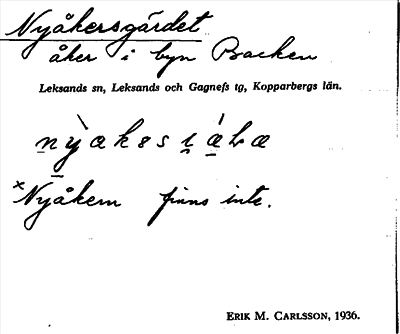 Nyåkersgärdet
åker i byn Backen
Leksands sn, Leksands och Gagnefs tg, Kopparbergs län.
*Nyåkern finns inte.
ERIK M. CARLSSON, 1936.